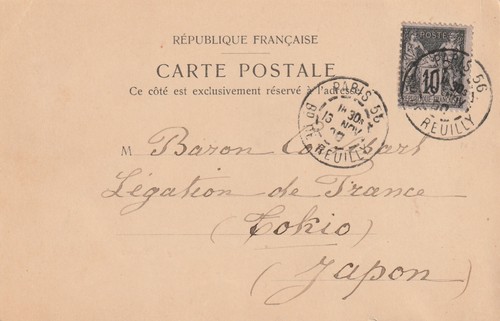 RÉPUBLIQUE FRANÇAISE
CARTE POSTALE
Ce côté est exclusivement réservé à l'adresse
POSTE
10
PARIS 56
REUILLY
PARIS 56
13 NOV
REUILLY
M Baron
Légation de France
(Tokio)
(Japon)